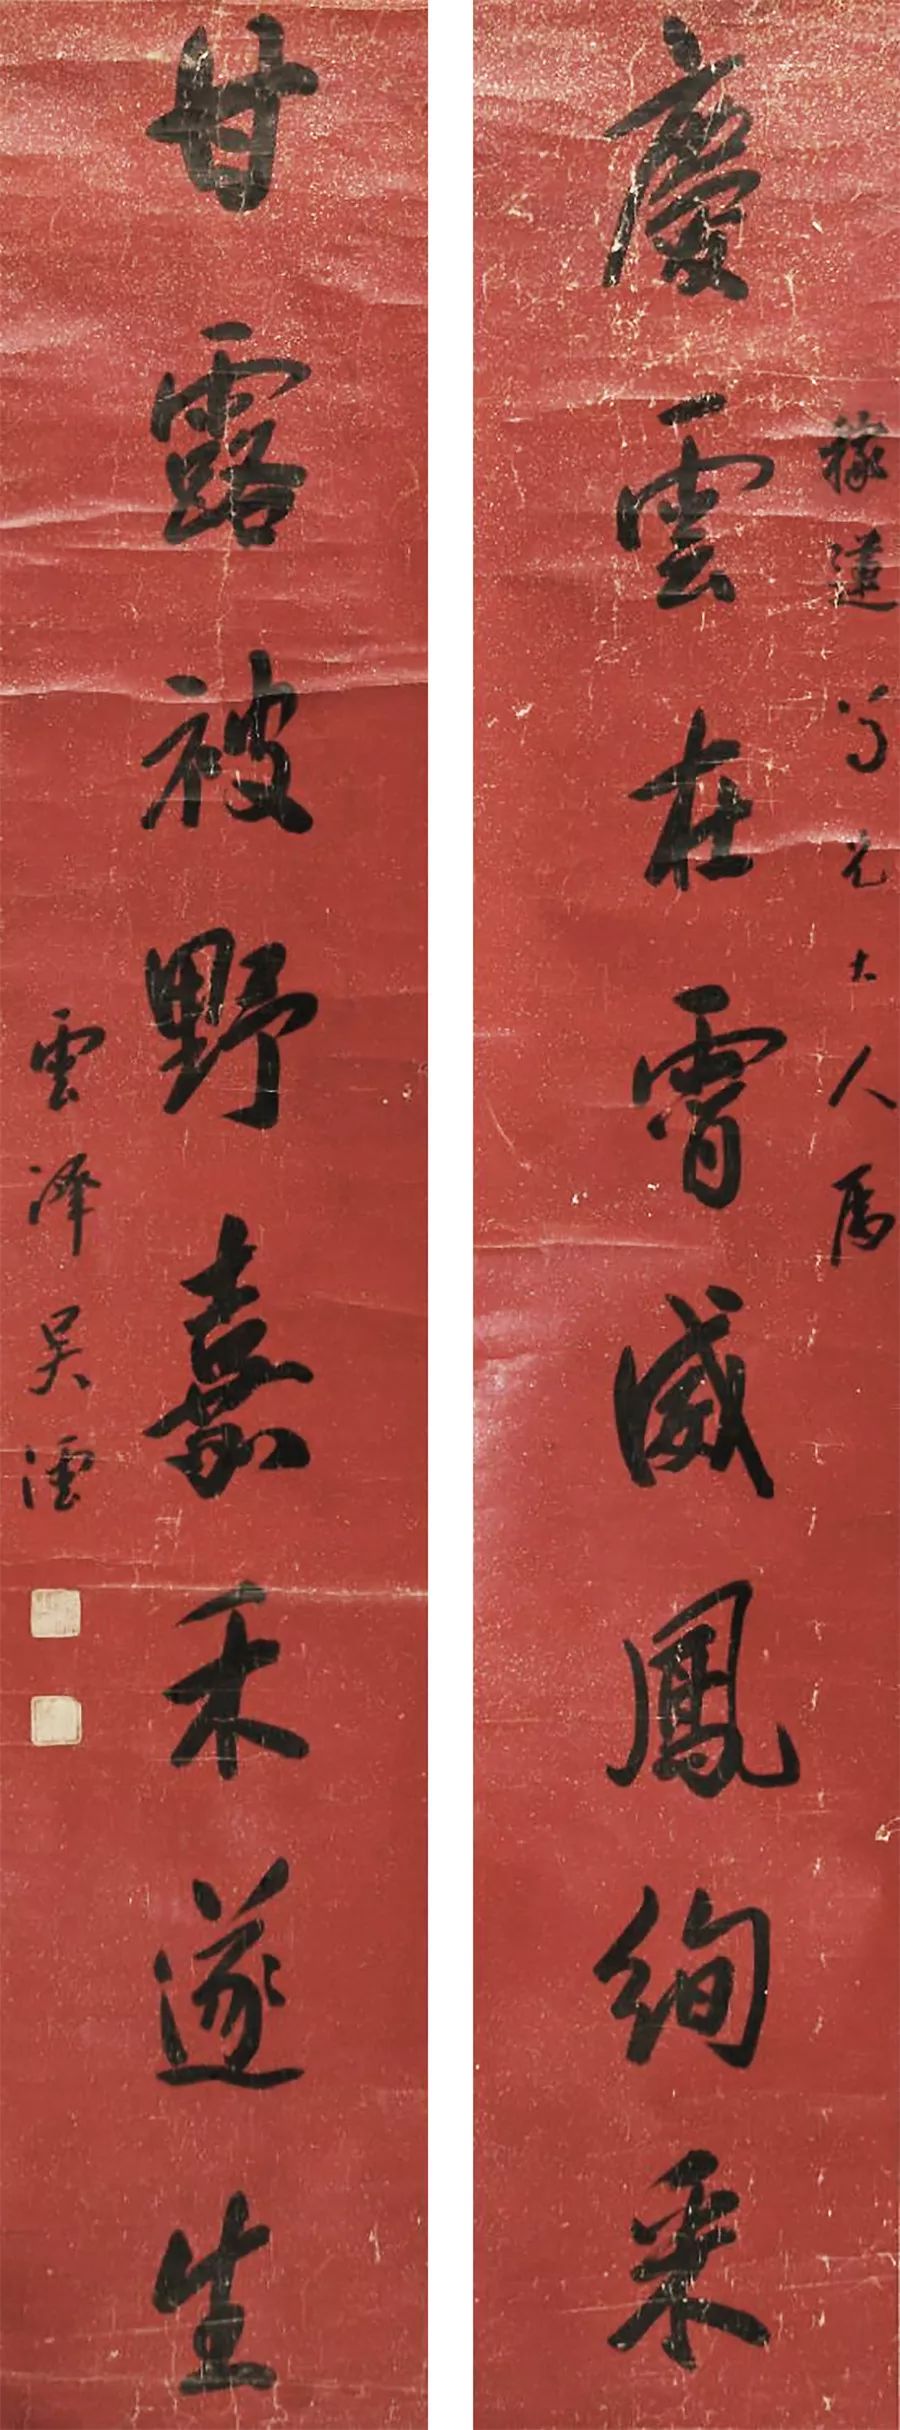 稼蓮尊兄大人属
慶雲在霄威鳳絢采
甘露被野嘉禾遂生
雲澤吴澐